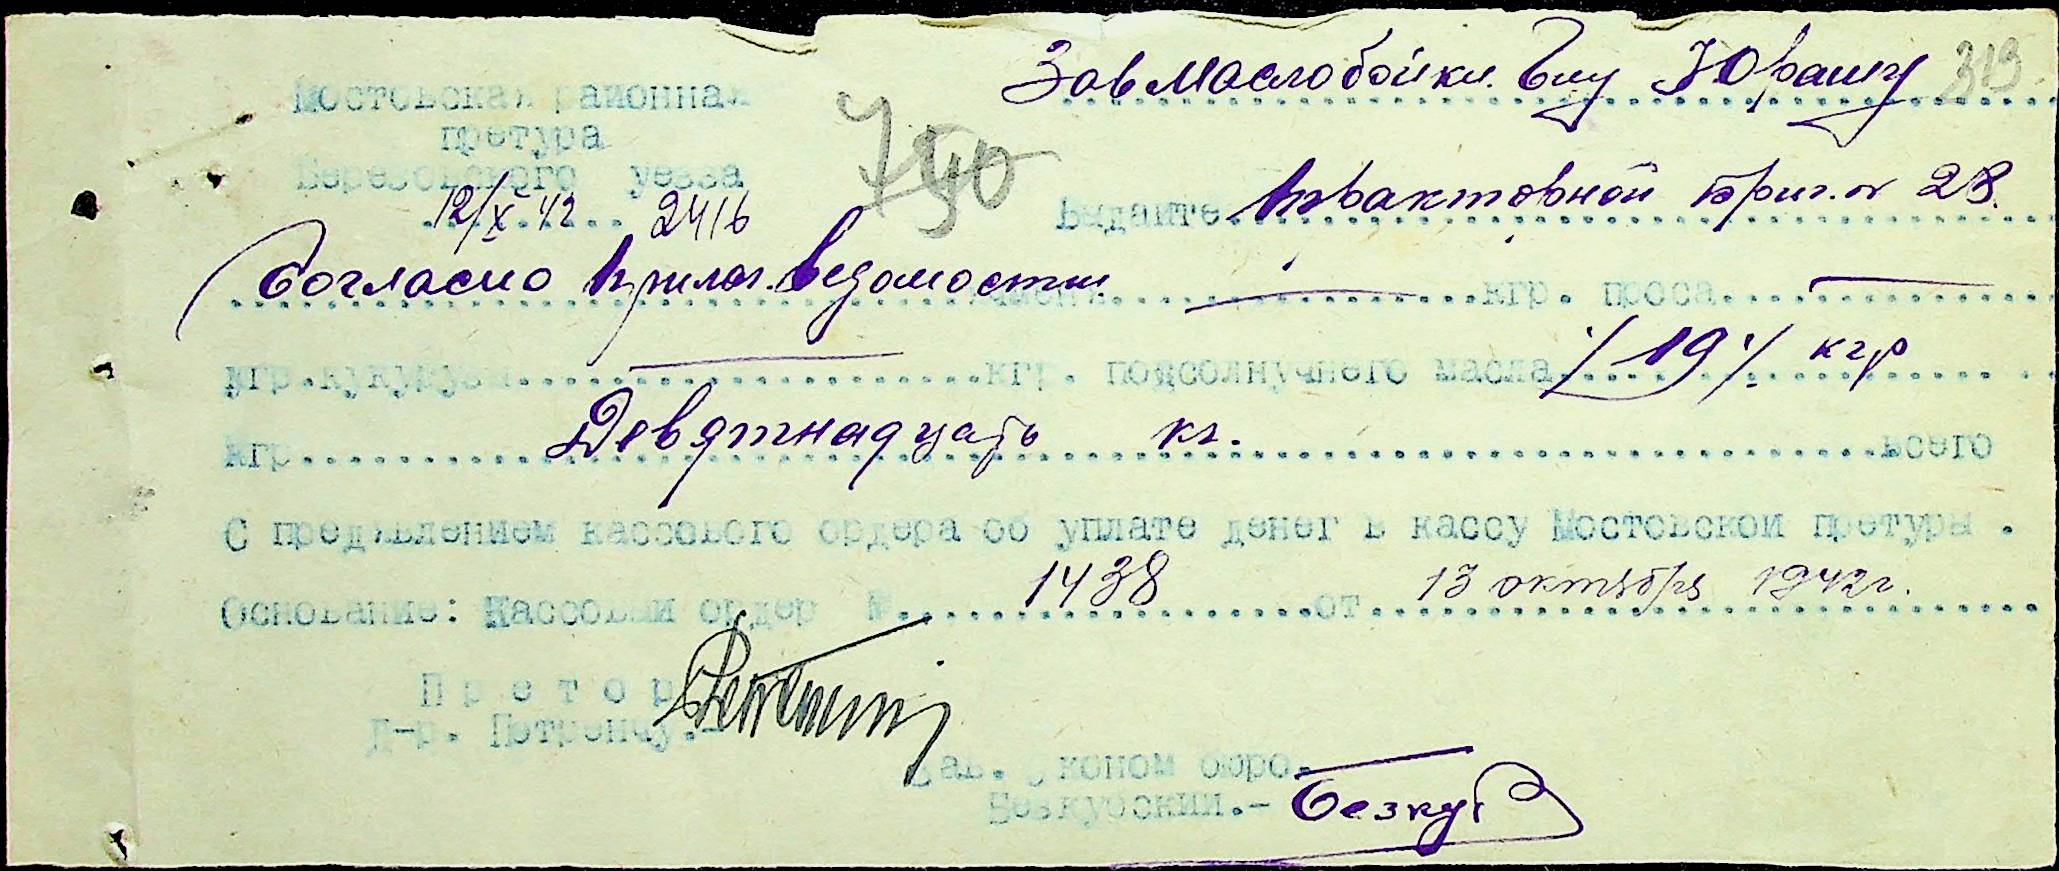 Зав маслобойки Б⁠му Юрашу 319
Мостовская районная
претура
Березовского уезда
12/X 42 2416
740
Выдайте Трактовной бриг. № 28.
Согласно прилог. Ведомости кгр. проса
кгр. кукурузы кгр. подсолнучнего масла /19/ кгр
кгр Девятнадцать кг. всего
С предявлением кассового ордера об уплате денег в кассу Мостовской претуры .
Основание: Кассовый ордер № 1438 от 13 октября 1942г.
Претор
Д-р. Петренчу.-
Зав. Эконом бюро.
Безкубский.- Безкуб